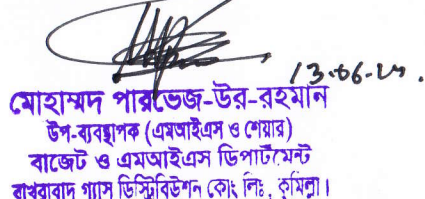 13.06.2৩.
মোহাম্মদ পারভেজ-উর-রহমান
উপ-ব্যবস্থাপক (এমআইএস ও শেয়ার)
বাজেট ও এমআইএস ডিপার্টমেন্ট
বাখরাবাদ গ্যাস ডিস্ট্রিবিউশন কোং লিঃ, কুমিল্লা।